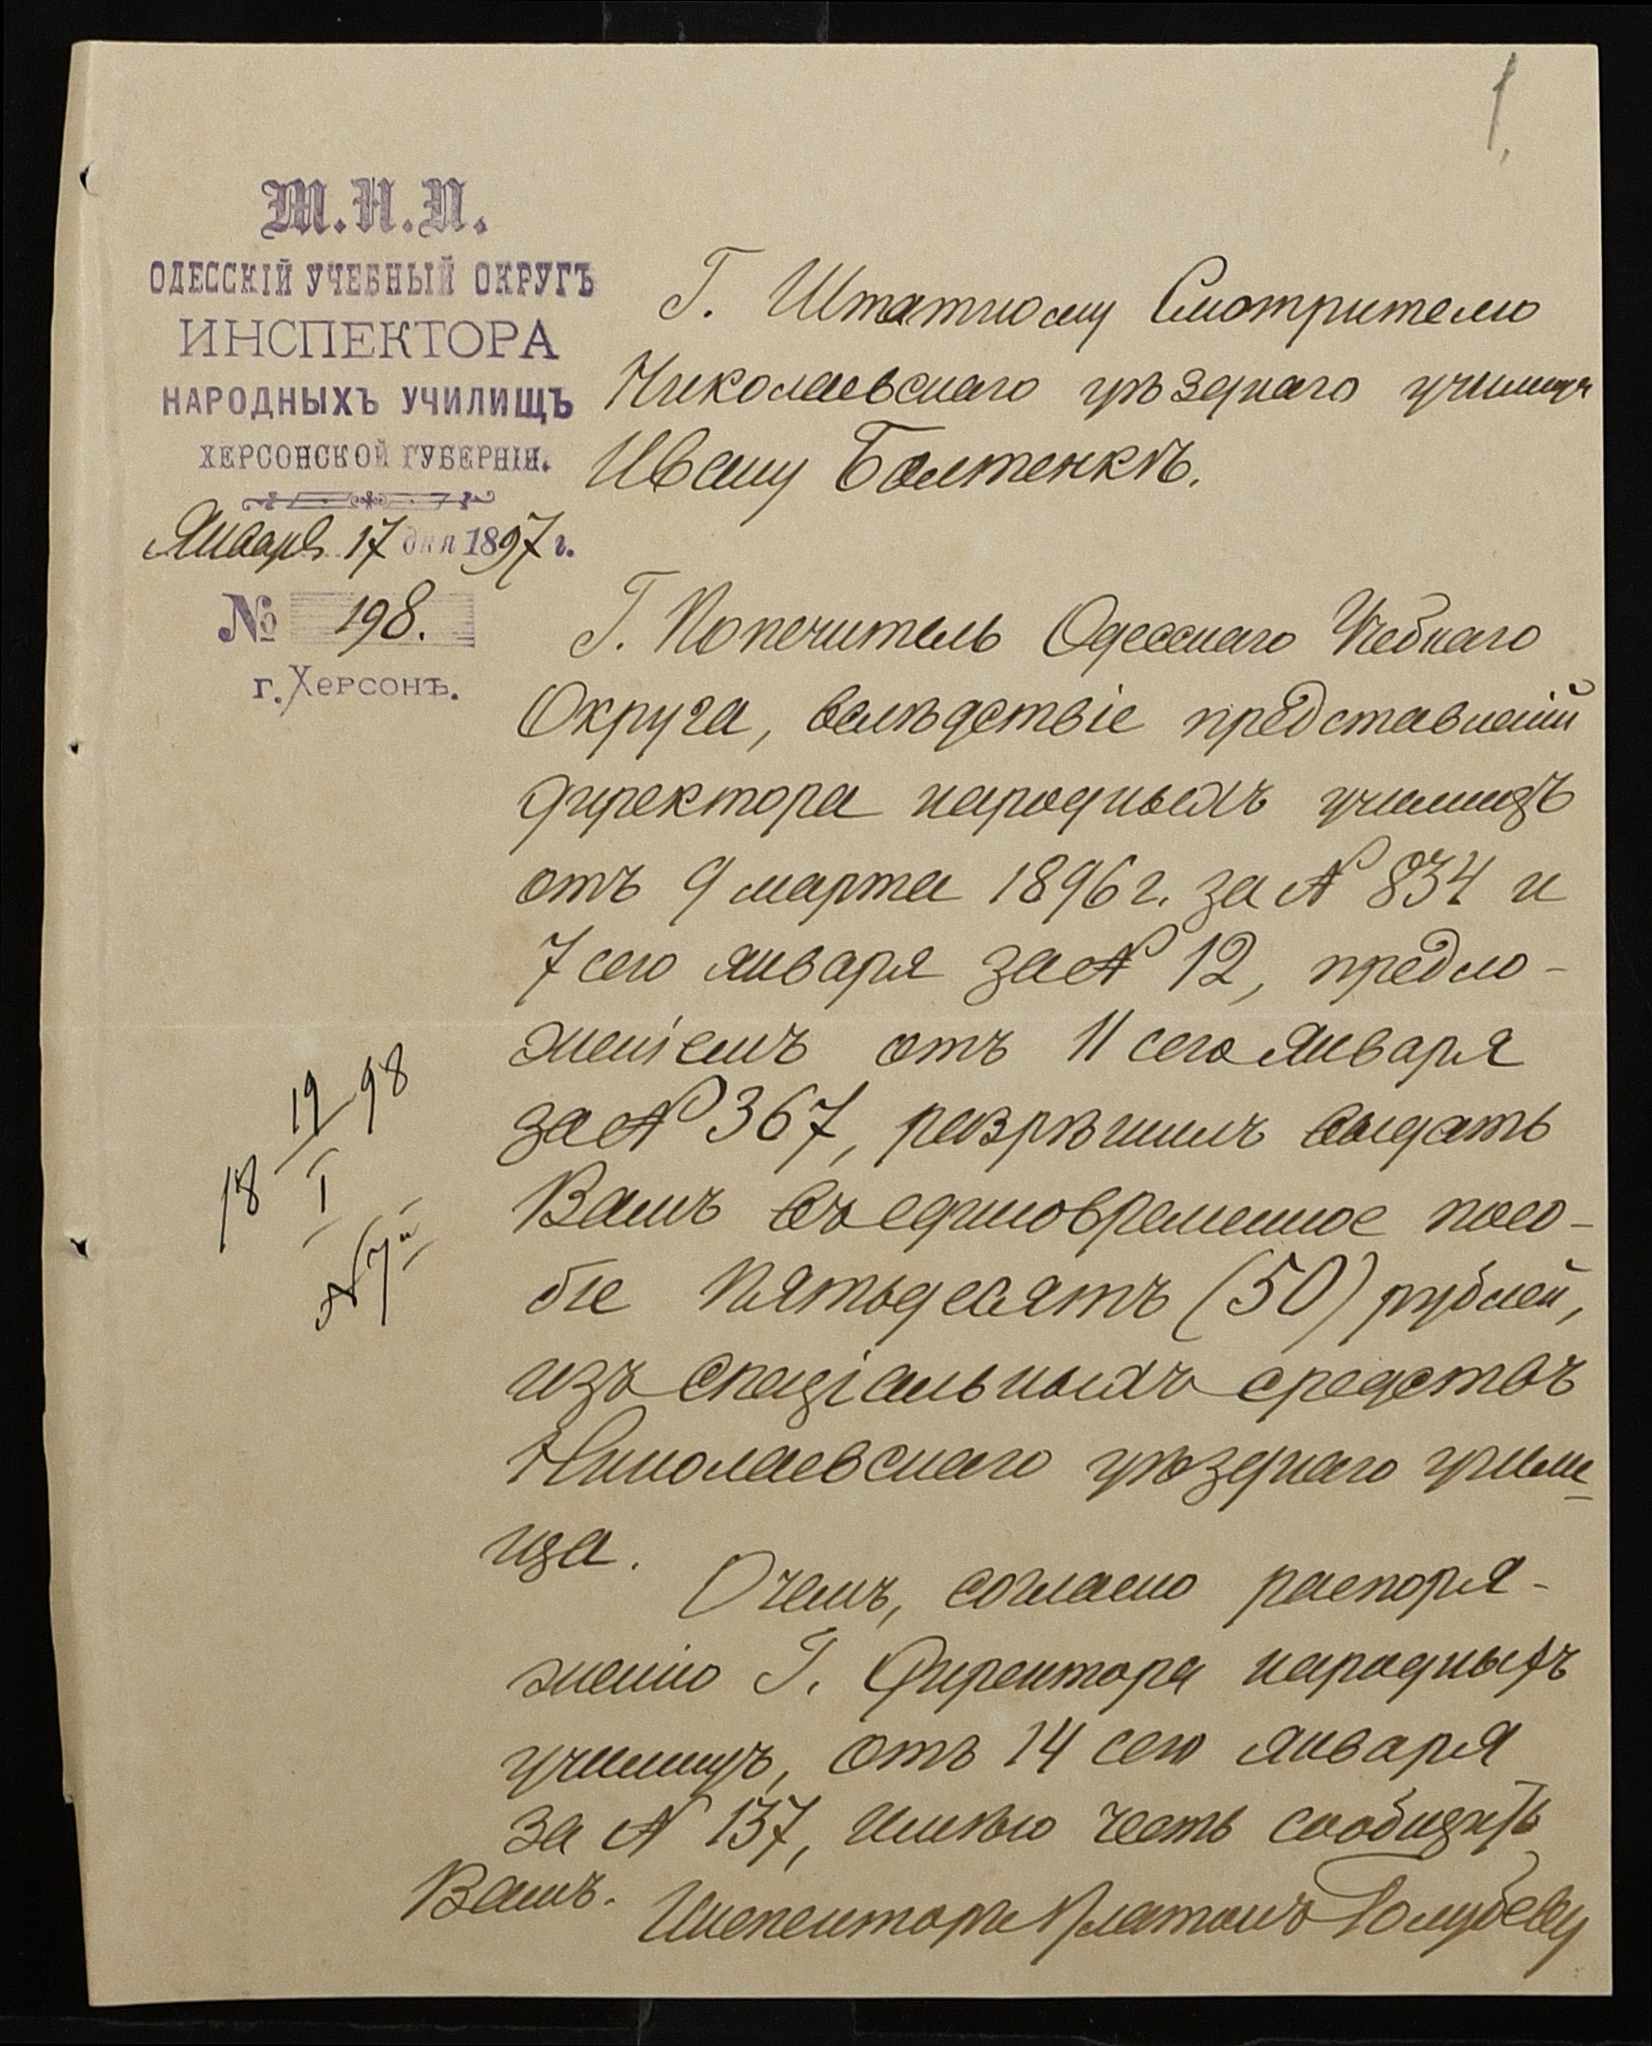 1
М.Н.П.
ОДЕССКІЙ УЧЕБНЫЙ ОКРУГЪ
ИНСПЕКТОРА
НАРОДНЫХЪ УЧИЛИЩЪ
ХЕРСОНСКОЙ ГУБЕРНІИ.
Январь 17 дня 1897 г.
№ 198.
г. Херсонъ.
Г. Штатному Смотрителю
Николаевскаго уѣзднаго училища
Ивану Балтенкѣ.
Г. Попечитель Одесскаго Учебнаго
Округа, вслѣдствіе представленій
Директора народныхъ училищъ
отъ 9 марта 1896 г. за № 834 и
7 сего января за № 12, предло-
женіемъ отъ 11 сего января
за № 367, разрѣшилъ выдать
Вамъ въ единовременное посо-
біе пятьдесятъ (50) рублей,
изъ спеціальныхъ средствъ
Николаевскаго уѣзднаго учили
ща.
О чемъ, согласно распоря-
женію Г. Директора народныхъ
училищъ, отъ 14 сего января
за № 137, имѣю честь сообщить
Вамъ.
Инспекторъ Платонъ Голубевъ
18 19/I 98
№ 7